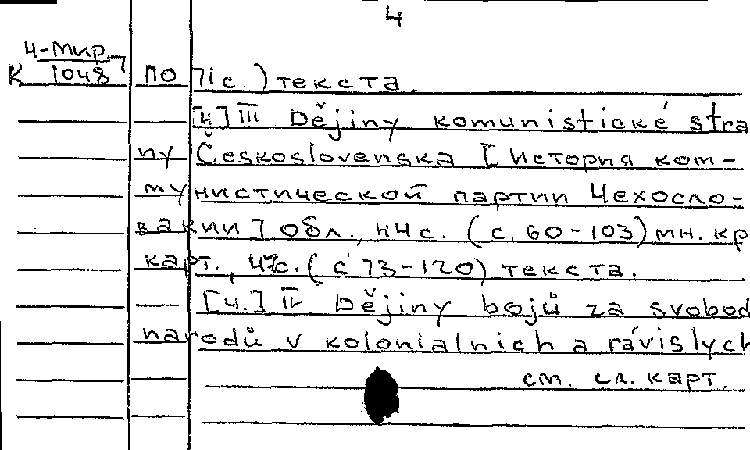 4
4-Мир.
К 1048
по 71с.) текста.
[ч.] III Dějiny komunistické stra
ny Československa [История ком-
мунистической партии Чехосло-
вакии] обл., 44с. (с. 60-103) мн. кр
карт., 47с. (с 73-120) текста.
[ч.] IV Dějiny bojů za svobod
narodů v kolonialnich a závislých
см. сл. карт.